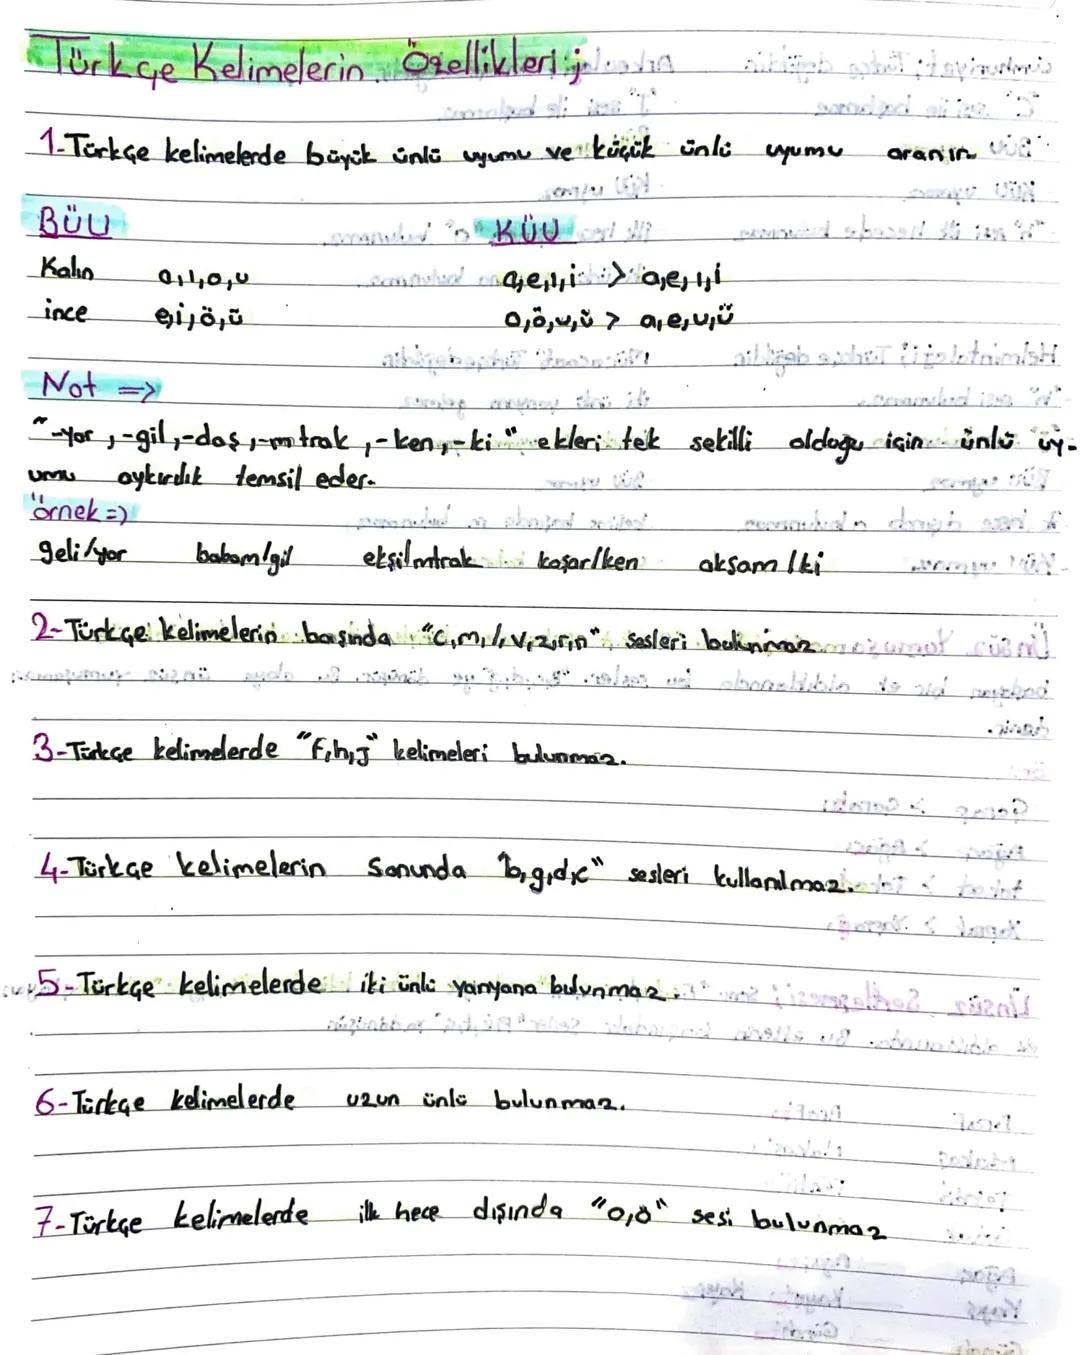 Türkçe Kelimelerin Özellikleri;
1-Türkçe kelimelerde büyük ünlü uyumu ve küçük ünlü uyumu aranır.
BÜU KÜU
Kalın a,ı,o,u a,e,ı,i > a,e,ı,i
ince e,i,ö,ü o,ö,u,ü > a,e,u,ü
Not =>
"-yor,-gil,-daş,-mtrak,-ken,-ki" ekleri tek sekilli oldogu için ünlü uy-
umu aykırdık temsil eder.
örnek =>
geli/yor babam/gil ekşi/mtrak koşar/ken aksam/ki
2-Türkçe kelimelerin başında "c,m,l,v,z,r,n" sesleri bulunmaz
3-Türkçe kelimelerde "f,h,j" kelimeleri bulunmaz.
4-Türkçe kelimelerin Sonunda "b,g,d,c" sesleri kullanılmaz.
5-Türkçe kelimelerde iki ünlü yanyana bulunmaz.
6-Türkçe kelimelerde uzun ünlü bulunmaz.
7-Türkçe kelimelerde ilk hece dışında "o,ö" sesi bulunmaz